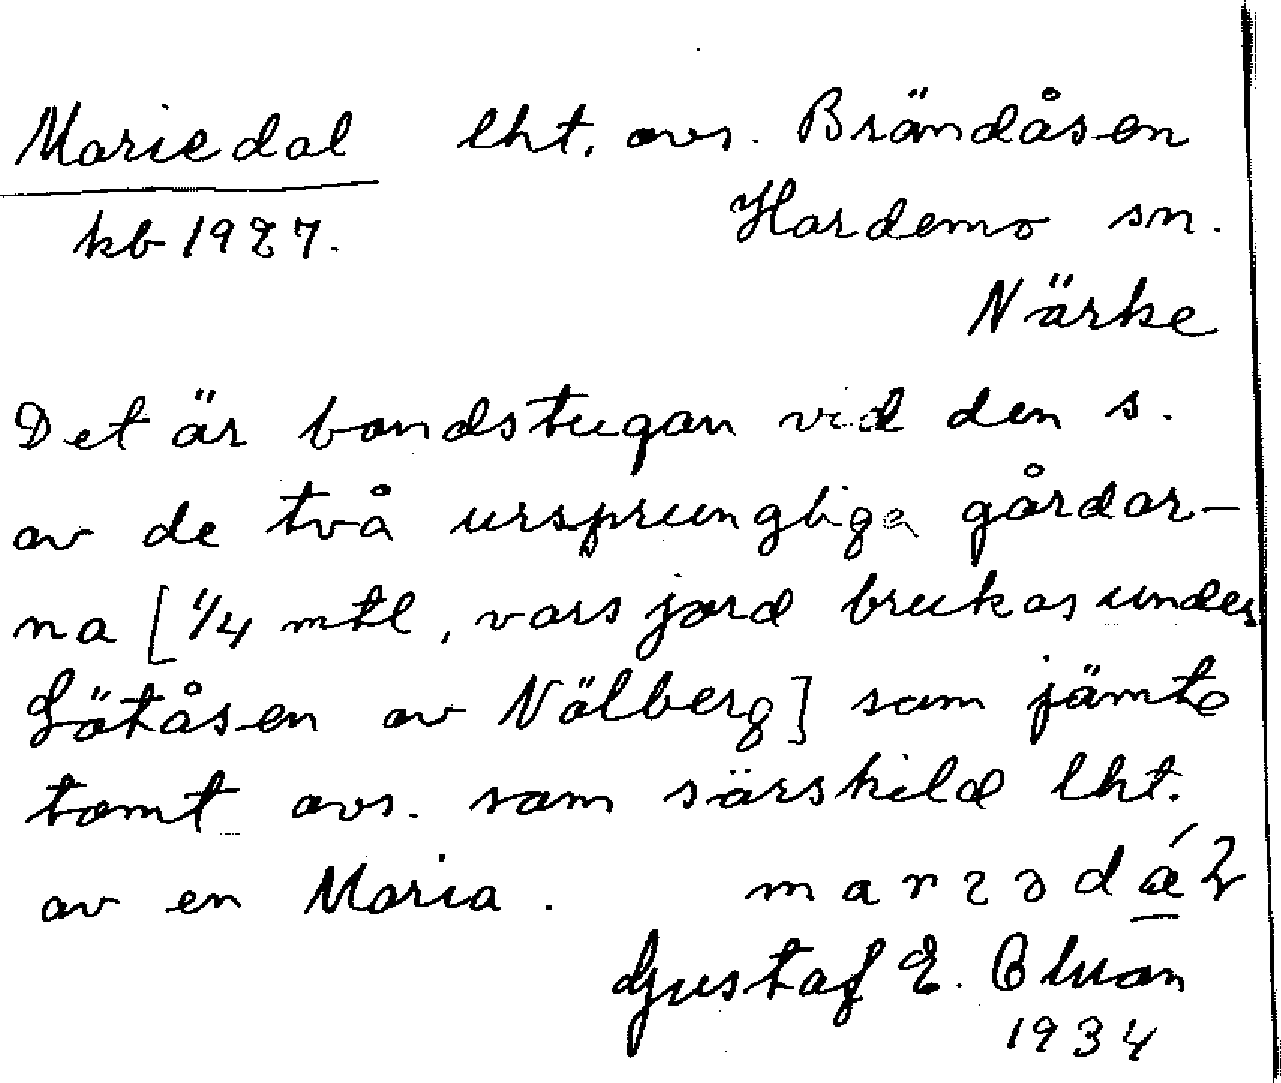 Mariedal lht. avs. Brändåsen
kb 1927. Hardemo sn.
Närke
Det är bondstugan vid den s.
av de två ursprungliga gårdar-
na [1/4 mtl, vars jord brukas under
Götåsen av Nölberg] som jämte
tomt avs. som särskild lht.
av en Maria.
Gustaf E.
1934